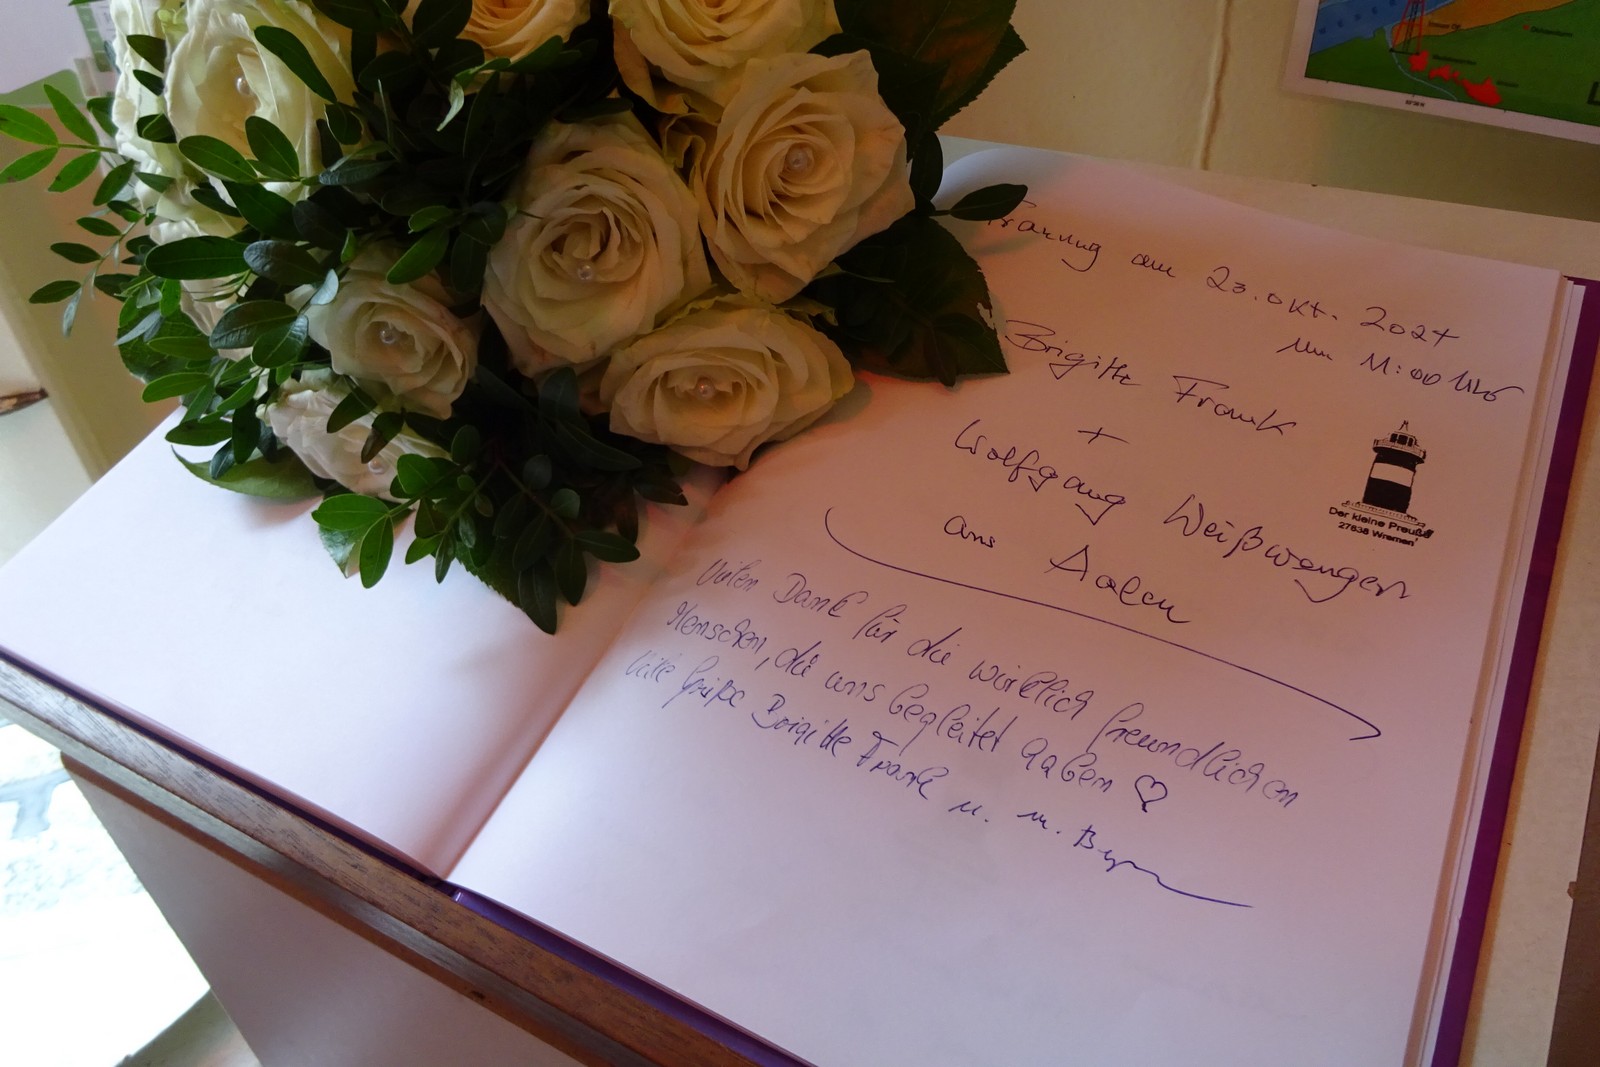 Trauung am 23. Okt. 2024
um 11:00 Uhr
Brigitte Frank
+
Wolfgang Weißwanger
aus Aalen
Der kleine Preuße
27638 Wremen
Vielen Dank für die wirklich freundlichen
Menschen, die uns begleitet haben ♡
Viele Grüße Brigitte Frank u. W.